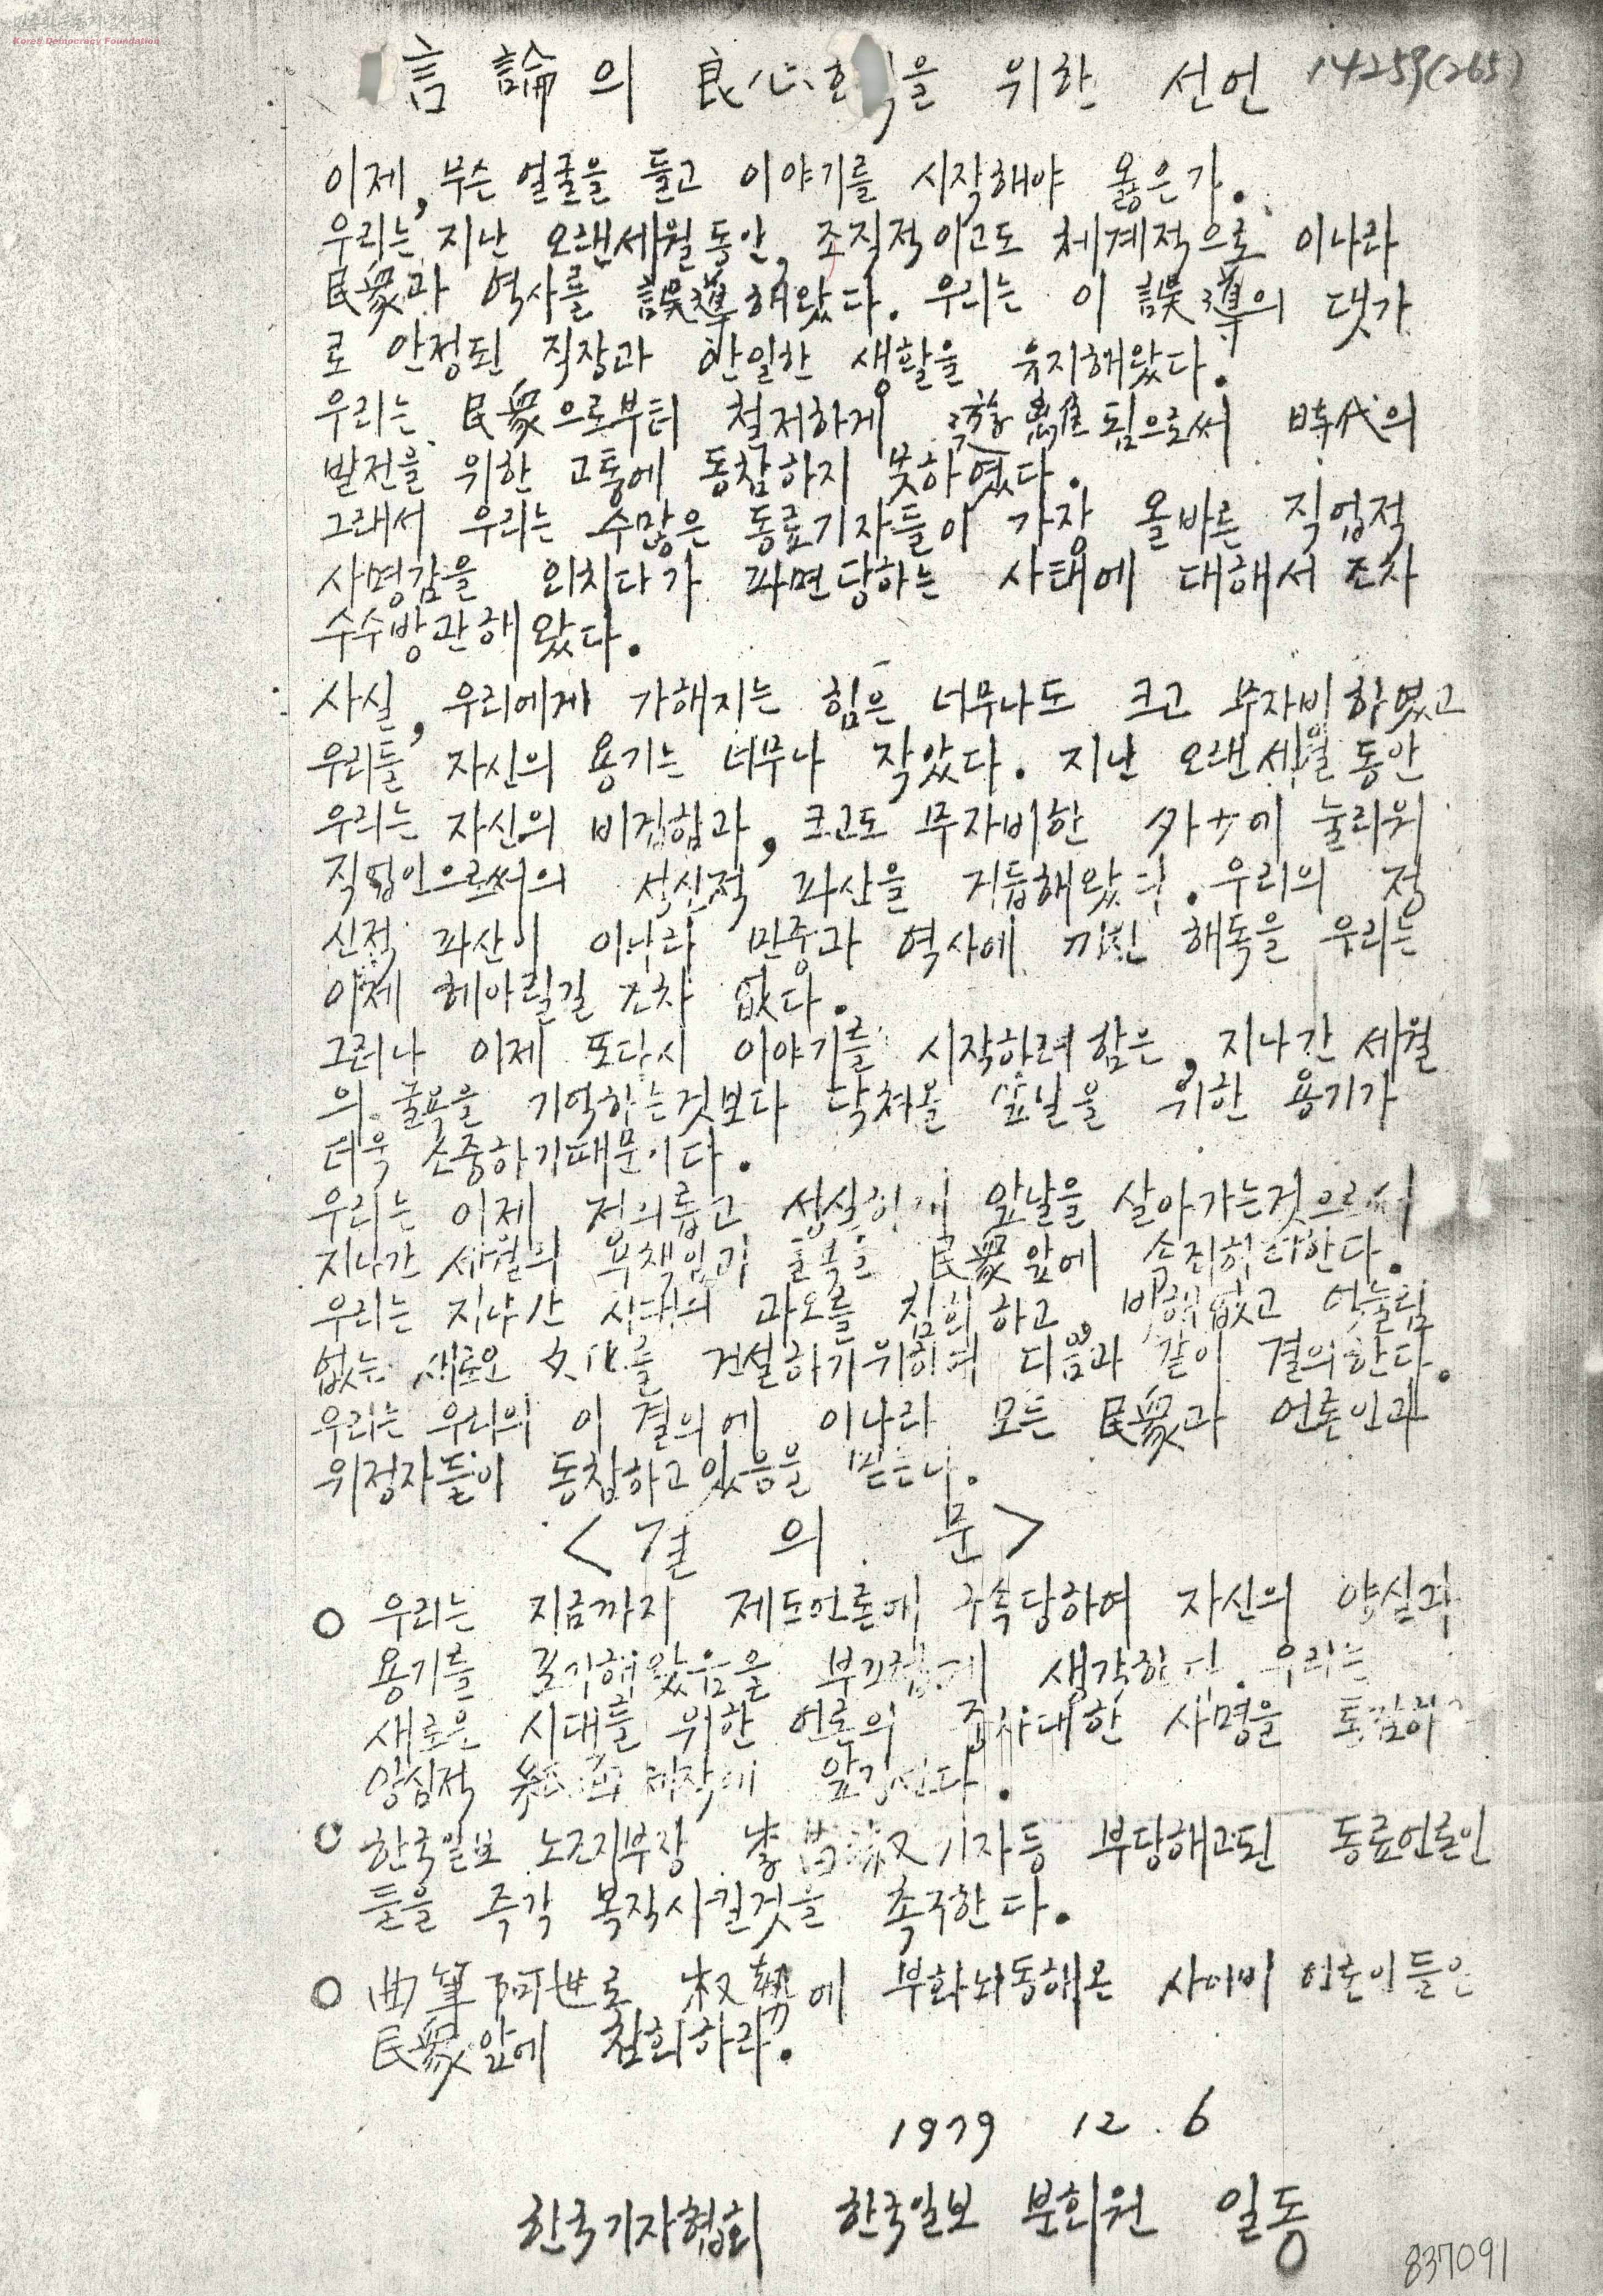 Korea Democracy Foundation
言論의 良心회복을 위한 선언 14253(265)
이제, 무슨 얼굴을 들고 이야기를 시작해야 옳은가.
우리는 지난 오랜세월동안, 조직적이고도 체계적으로 이나라
民衆과 역사를 誤導해왔다. 우리는 이 誤導의 댓가
로 안정된 직장과 안일한 생활을 유지해왔다.
우리는 民衆으로부터 철저하게 遊離됨으로써 時代의
발전을 위한 고통에 동참하지 못하였다.
그래서 우리는 수많은 동료기자들이 가장 올바른 직업적
사명감을 외치다가 파면당하는 사태에 대해서 조차
수수방관해 왔다.
사실, 우리에게 가해지는 힘은 너무나도 크고 무자비하였고
우리들 자신의 용기는 너무나 작았다. 지난 오랜세월동안
우리는 자신의 비겁함과, 크고도 무자비한 에 눌리워
직업인으로써의 정신적 파산을 거듭해왔다. 우리의 정
신적 파산이 이나라 민중과 역사에 끼친 해독을 우리는
이제 헤아릴길 조차 없다.
그러나 이제 또다시 이야기를 시작하려함은, 지나간 세월
의 굴욕을 기억하는것보다 닥쳐올 앞날을 위한 용기가
더욱 소중하기때문이다.
우리는 이제 정의롭고 성실하게 앞날을 살아가는것으로써
지나간 세월의 무책임과 굴욕을 民衆앞에 속죄하려한다.
우리는 지나간 시대의 과오를 참회하고, 박해없고 억눌림
없는 새로운 文化를 건설하기위하여 다음과 같이 결의한다.
우리는 우리의 이 결의에 이나라 모든 民衆과 언론인과
위정자들이 동참하고있음을 믿는다.
<결 의 문>
○ 우리는 지금까지 제도언론에 구속당하여 자신의 양심과
용기를 포기해왔음을 부끄럽게 생각한다. 우리는
새로운 시대를 위한 언론의 중차대한 사명을 통감하고
양심적 紙面제작에 앞장선다.
○ 한국일보 노조지부장 李昌淑 기자등 부당해고된 동료언론인
들을 즉각 복직시킬것을 촉구한다.
○ 曲筆阿世로 权勢에 부화뇌동해온 사이비 언론인들은
民衆앞에 참회하라.
1979 12. 6
한국기자협회 한국일보 분회원 일동
837091